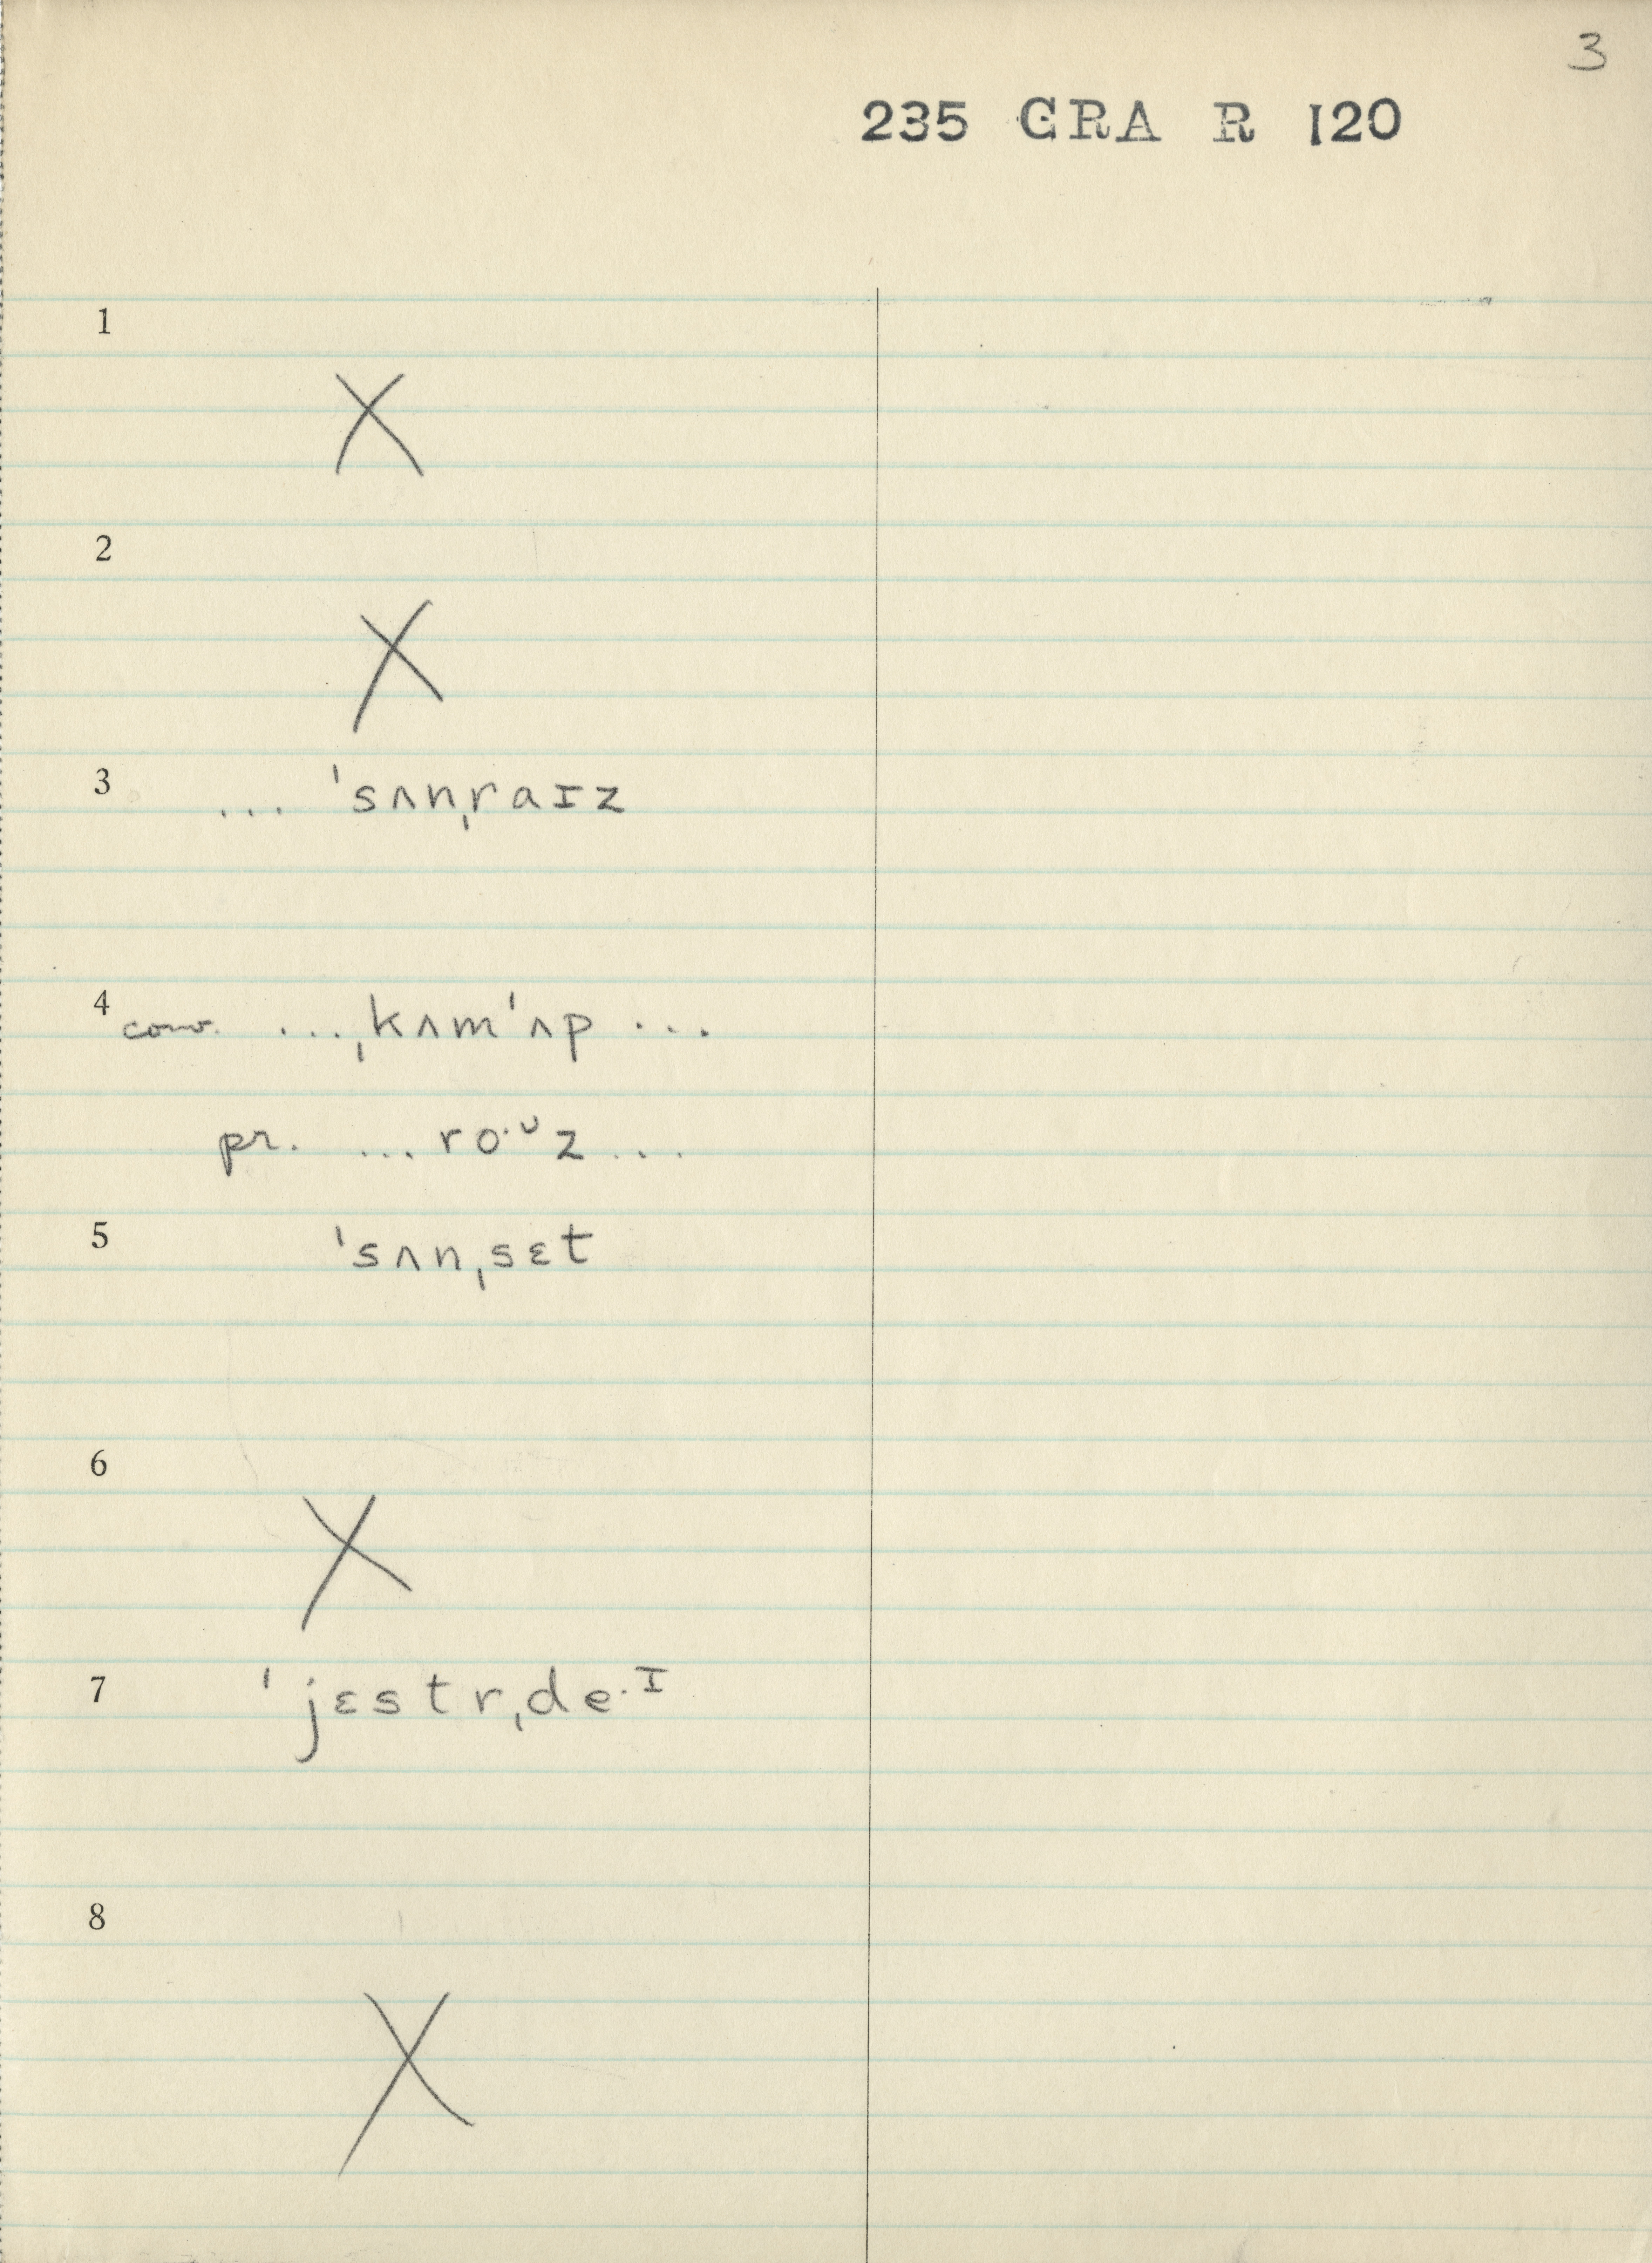 3
235 GRA R 120
1
X
2
X
3 ... ˈsʌnˌraɪz
4 conv. ...ˌkʌmˈʌp ...
pr. ... ro·ᶷz ...
5 ˈsʌnˌsɛt
6
X
7 ˈjɛstrˌde·ᴵ
8
X